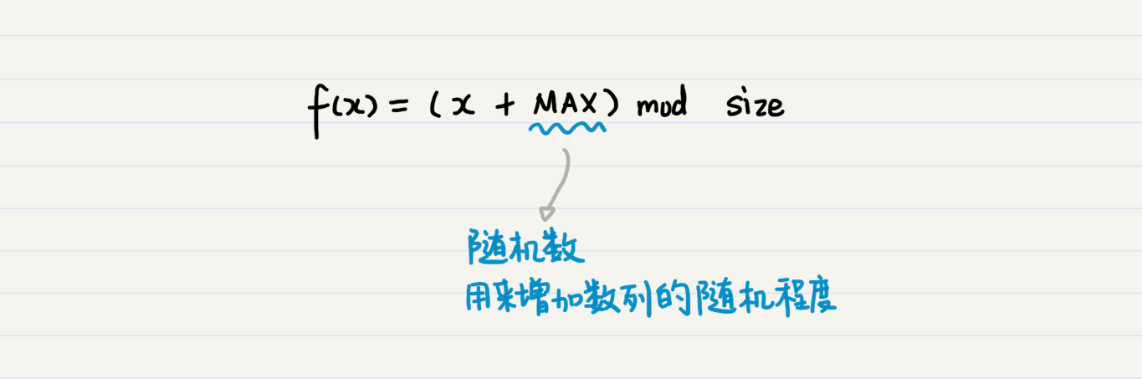 f(x) = (x + MAX) mod size
随机数
用来增加数列的随机程度